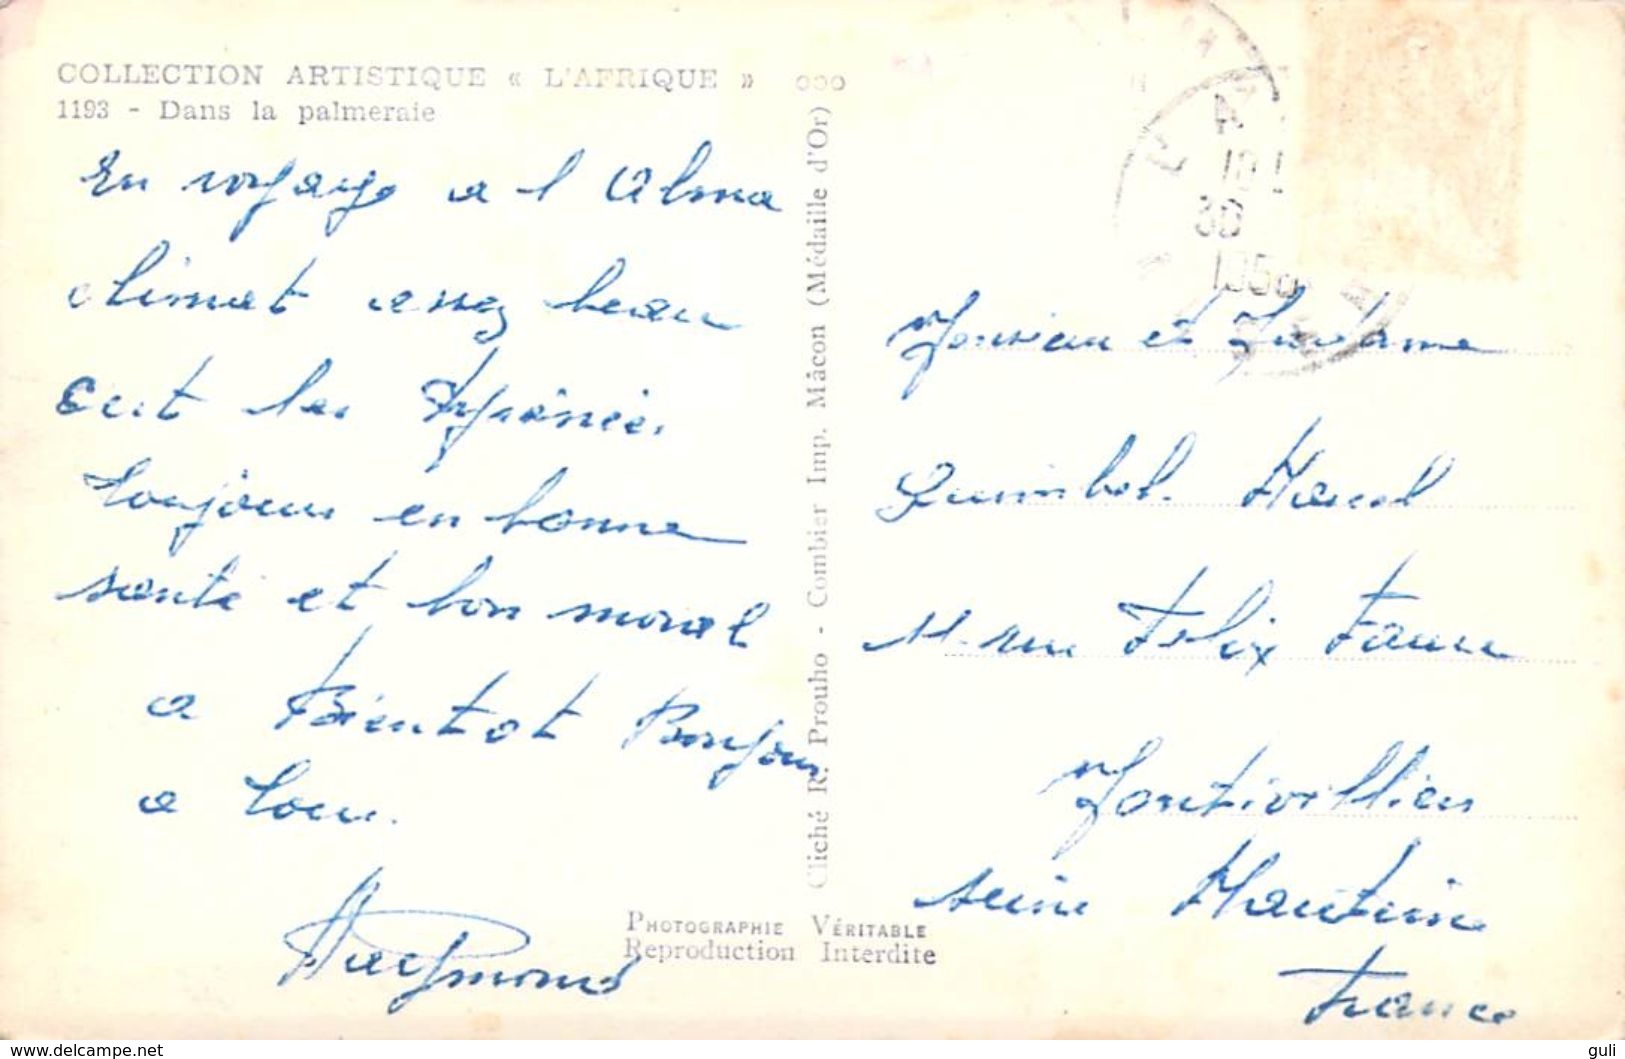 COLLECTION ARTISTIQUE « L'AFRIQUE » ooo
1193 - Dans la palmeraie
En voyage a l Alma
climat assez beau
toujours en bonne
santé et bon moral
a Bientot Bonjour
a tous.
Raymond
Cliché R. Prouho - Combier Imp. Mâcon (Médaille d'Or)
PHOTOGRAPHIE VÉRITABLE
Reproduction Interdite
A
10
30
195
Monsieur et Madame
Quimbel Marcel
rue Felix Faure
Montivilliers
seine Maritime
France
guli